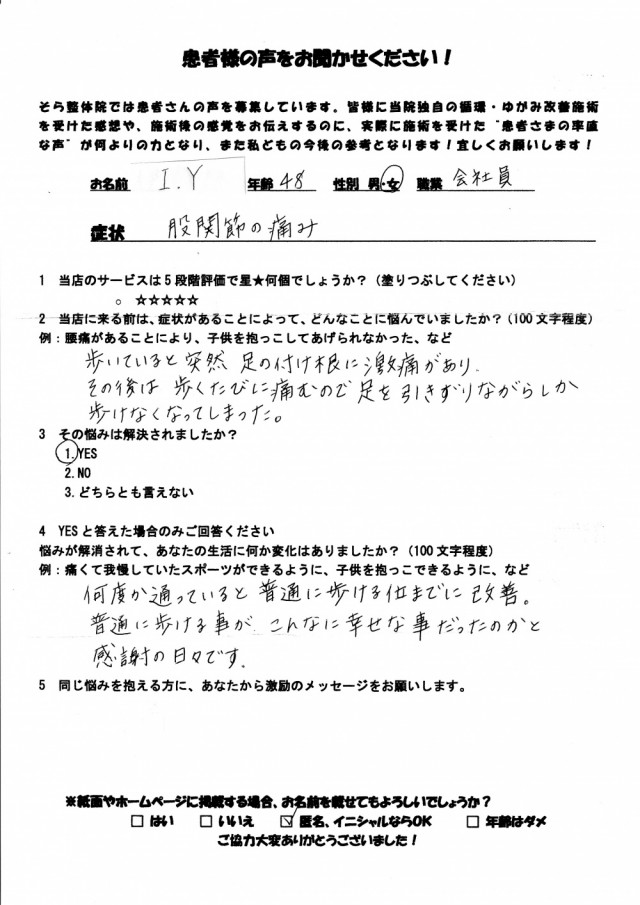 患者様の声をお聞かせください！
そら整体院では患者さんの声を募集しています。皆様に当院独自の循環・ゆがみ改善施術
を受けた感想や、施術後の感覚をお伝えするのに、実際に施術を受けた“患者さまの率直
な声”が何よりの力となり、また私どもの今後の参考となります！宜しくお願いします！
お名前 I.Y 年齢 48 性別 男・女 職業 会社員
症状 股関節の痛み
1 当店のサービスは5段階評価で星★何個でしょうか？（塗りつぶしてください）
○ ☆☆☆☆☆
2 当店に来る前は、症状があることによって、どんなことに悩んでいましたか？（100文字程度）
例：腰痛があることにより、子供を抱っこしてあげられなかった、など
歩いていると突然 足の付け根に激痛があり
その後は 歩くたびに痛むので足を引きずりながらしか
歩けなくなってしまった。
3 その悩みは解決されましたか？
1.YES
2.NO
3.どちらとも言えない
4 YESと答えた場合のみご回答ください
悩みが解消されて、あなたの生活に何か変化はありましたか？（100文字程度）
例：痛くて我慢していたスポーツができるように、子供を抱っこできるように、など
何度か通っていると普通に歩ける位までに改善。
普通に歩ける事が こんなに幸せな事だったのかと
感謝の日々です.
5 同じ悩みを抱える方に、あなたから激励のメッセージをお願いします。
※紙面やホームページに掲載する場合、お名前を載せてもよろしいでしょうか？
□ はい □ いいえ ☑ 匿名、イニシャルならOK □ 年齢はダメ
ご協力大変ありがとうございました！